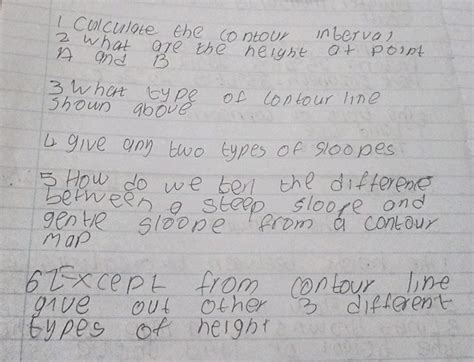 1 Calculate the contour interval
2 what are the height at point
A and B
3 What type of contour line
shown above
4 give any two types of sloopes
5 How do we tell the difference
between a steep sloope and
gentle sloope from a contour
map
6 Except from contour line
give out other 3 different
types of height